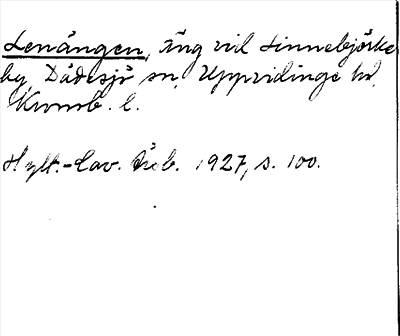 Lenängen, äng vid Linnebjörke
by, Dädesjö sn, Uppvidinge hd,
Kronob. l.
Hylt.-Cav. Årsb. 1927, s. 100.